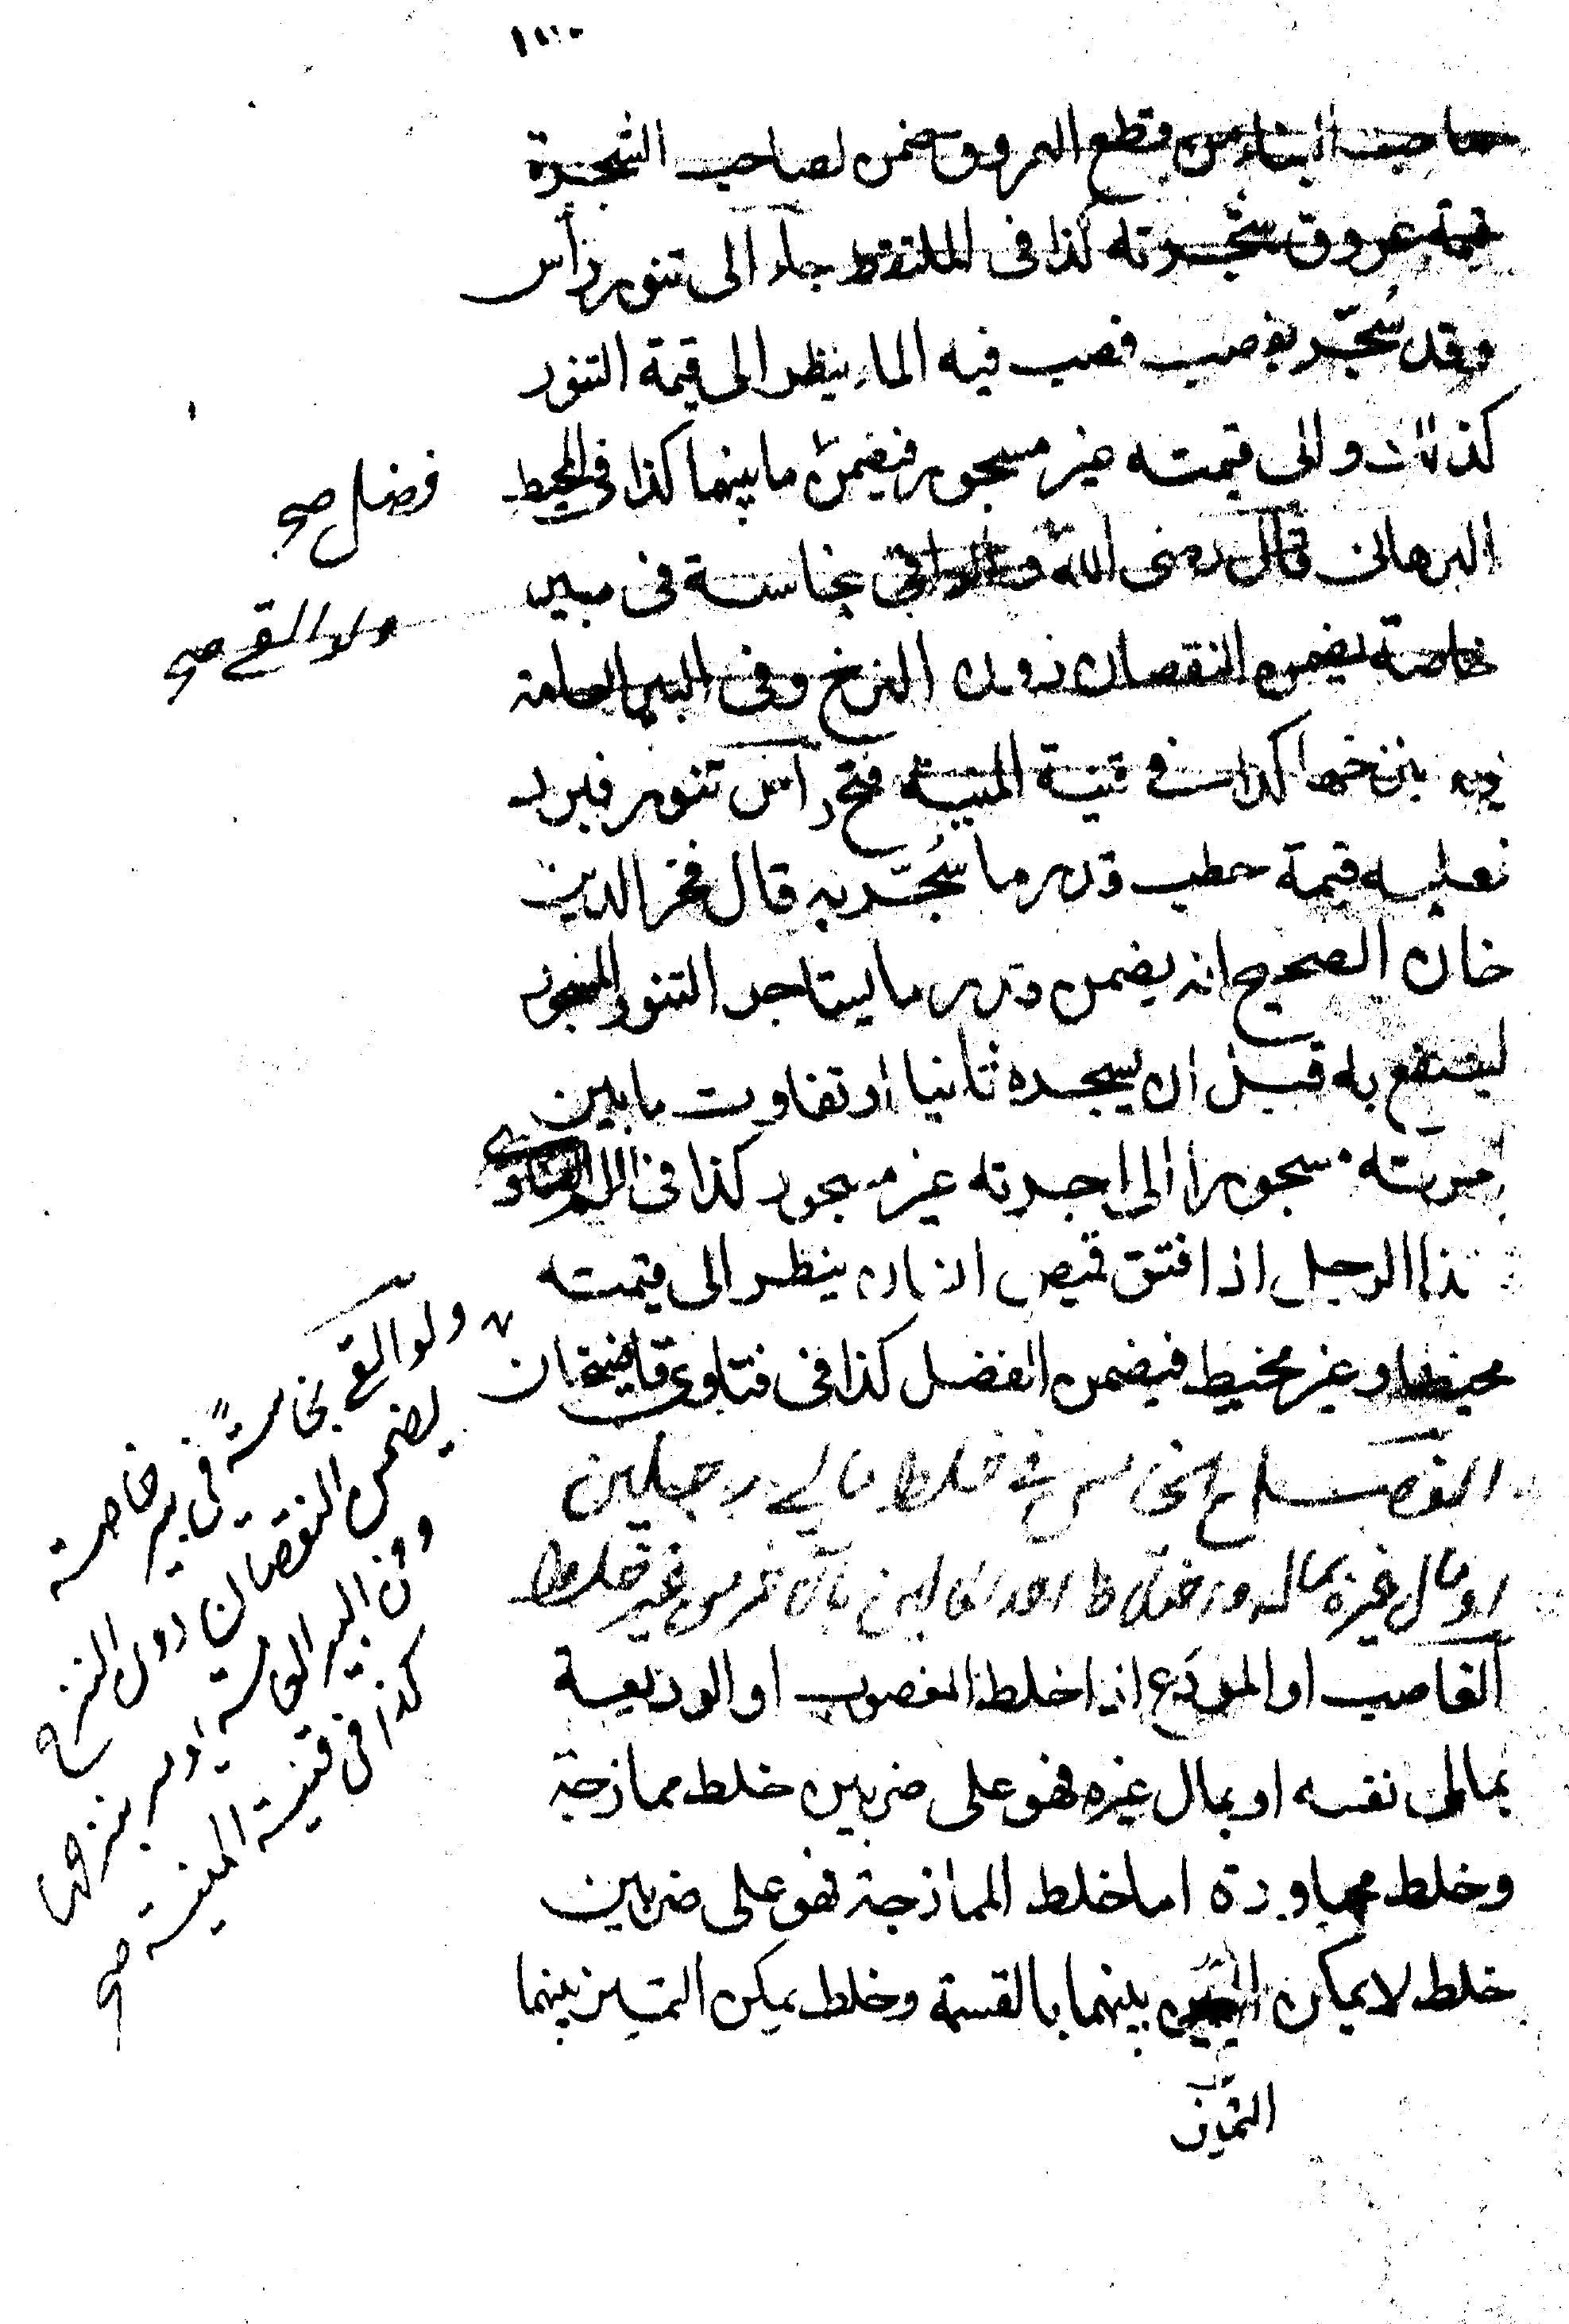 صاحب البناء من قطع العروق ضمن لصاحب الشجرة
قيمة عروق شجرته كذا في الملتقط جاء الى تنور رأس
وقد سُجّر بقصب فصب فيه الماء ينظر الى قيمة التنور
كذلك والى قيمته غير مسجور فيضمن ما بينهما كذا في المحيط
البرهانى قال رضى الله نجاسة في بير
خاصة يضمن النقصان دون النزح وفى البير العامة
ينزحها كذا في قنية المنية فتح رأس تنور فبرد
فعليه قيمة حطب قدر ما سُجّر به قال فخر الدين
خان الصحيح انه يضمن قدر ما يستاجر التنور المسجور
لينتفع به قبل ان يسجره ثانيا او تفاوت ما بين
اجرته مسجورا الى اجرته غير مسجور كذا في الفتاوى
الرجل اذا فتق قميص انسان ينظر الى قيمته
مخيطا وغير مخيط فيضمن الفضل كذا في فتاوى قاضيخان
الفصل الخامس في خلط مالى رجلين
او مال غيره بماله واختلاط احد المالين بالاخر من غير خلط
الغاصب او المودَع اذا خلط المغصوب او الوديعة
بمال نفسه او بمال غيره فهو على ضربين خلط ممازجة
وخلط مجاورة اما خلط الممازجة فهو على ضربين
خلط لا يمكن التمييز بينهما بالقسمة وخلط يمكن التمييز بينهما
التميز
فضل صح
ولو القى صح
ولو القى نجاسة في بير خاصة
يضمن النقصان دون النزح
وفى البير العامة يؤمر بنزحها
كذا في قنية المنية صح